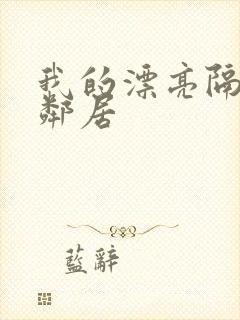 我的漂亮隔
鄰居
藍辭